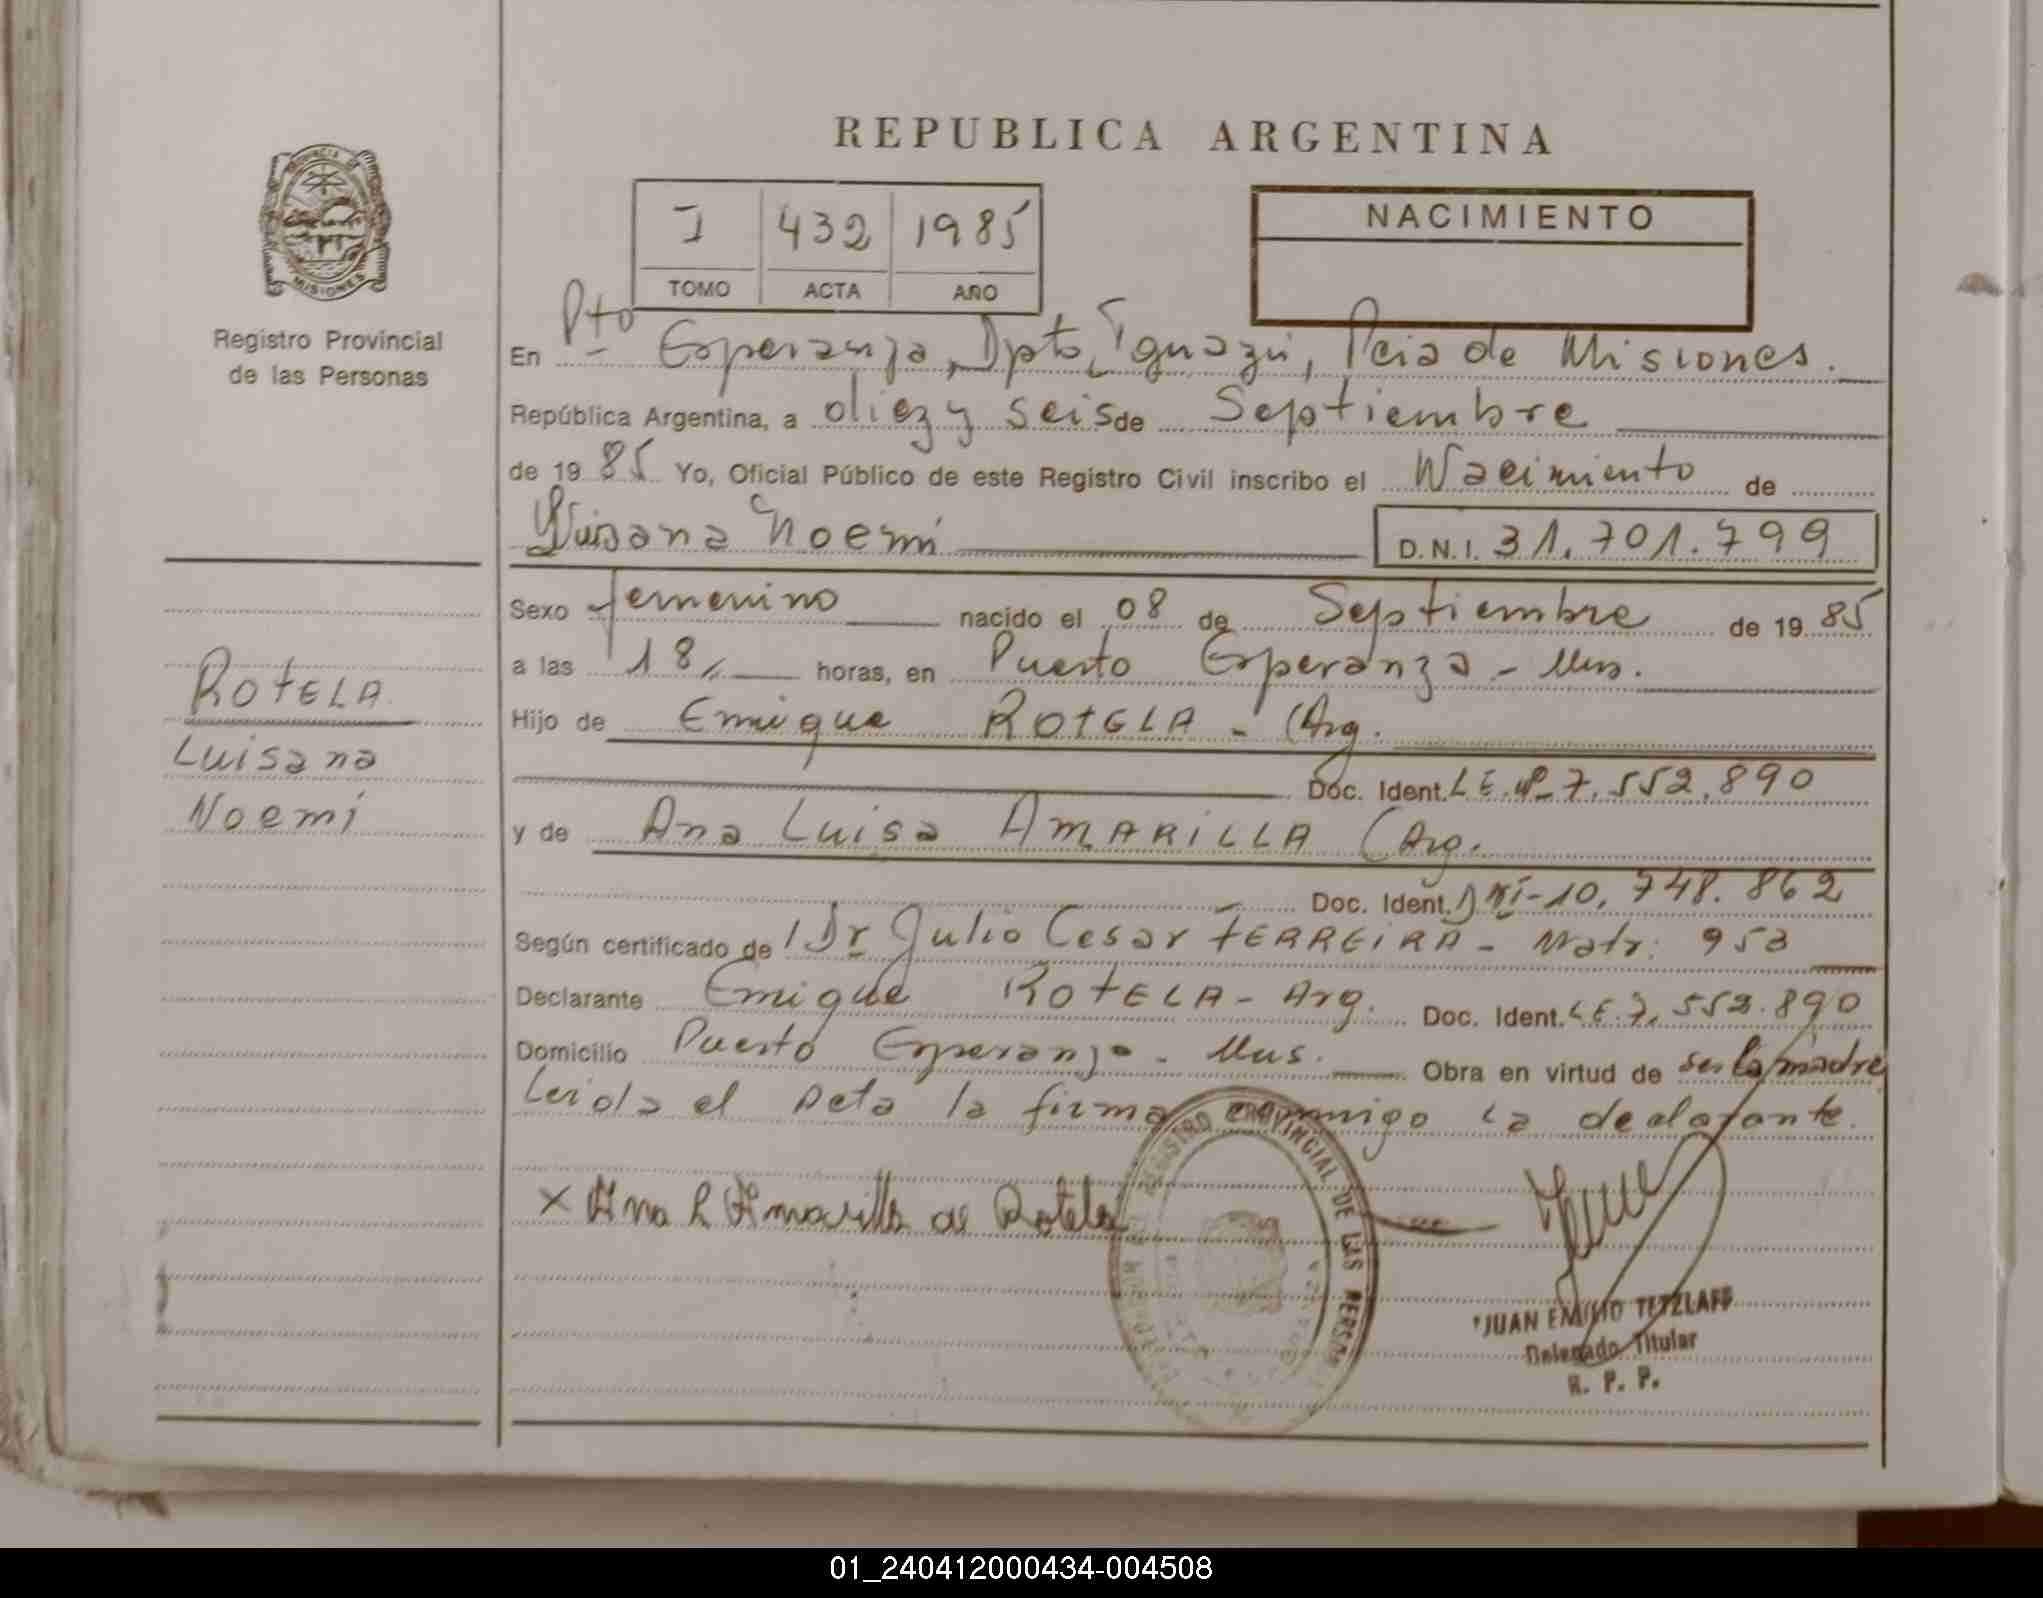 REPUBLICA ARGENTINA
PROVINCIA DE
MISIONES
Registro Provincial
de las Personas
I 432 1985
TOMO ACTA AÑO
NACIMIENTO
En Pto Esperanza, Dpto, Iguazú, Pcia de Misiones.
República Argentina, a diez y seis de Septiembre
de 19 85 Yo, Oficial Público de este Registro Civil inscribo el Nacimiento de
Luisana Noemí D.N.I. 31.701.799
Sexo femenino nacido el 08 de Septiembre de 19 85
a las 18,, horas, en Puerto Esperanza - Mis.
Hijo de Enrique ROTELA - (Arg.
Doc. Ident. L E. Nº 7.552.890
y de Ana Luisa AMARILLA (Arg.
Doc. Ident. DNI-10.748.862
Según certificado de Dr Julio Cesar FERREIRA - Matr: 953
Declarante Enrique ROTELA - Arg. Doc. Ident. LE.7.552.890
Domicilio Puerto Esperanza - Mis. Obra en virtud de ser la madre
Leida el Acta la firma conmigo la declarante.
ROTELA
Luisana
Noemí
x Ana L Amarilla de Rotela
REGISTRO PROVINCIAL DE LAS PERSONAS
JUAN EMILIO TETZLAFF
Delegado Titular
R. P. P.
01_240412000434-004508